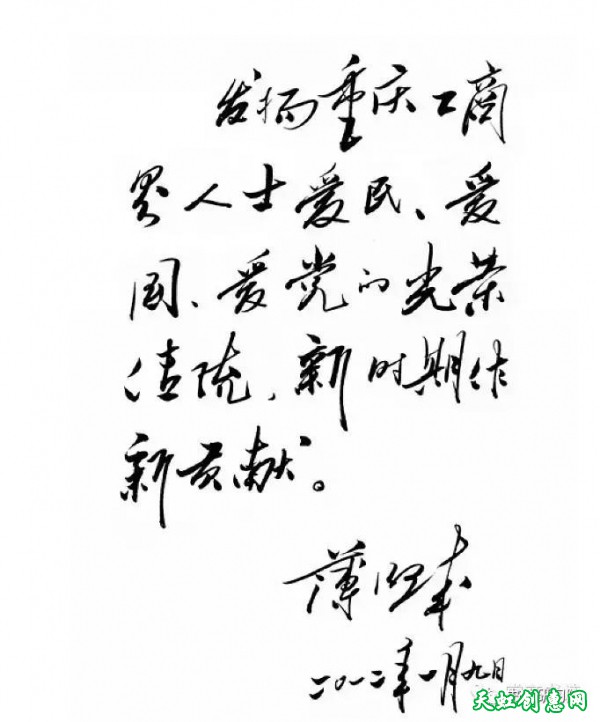 发扬重庆工商
界人士爱民、爱
国、爱党的光荣
传统，新时期作
新贡献。
薄熙来
二〇一二年一月九日
天虹创意网